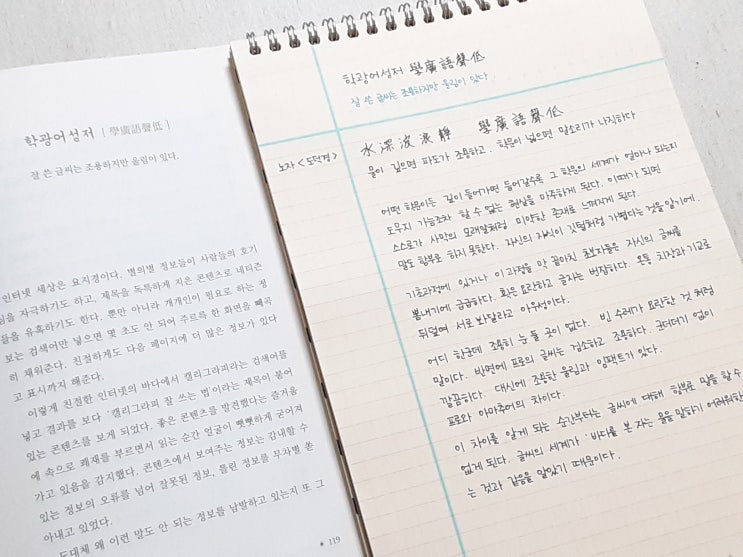 학광어성저 [ 學廣語聲低 ]
잘 쓴 글씨는 조용하지만 울림이 있다.
인터넷 세상은 요지경이다. 별의별 정보들이 사람들의 호기
심을 자극하기도 하고, 제목을 독특하게 지은 콘텐츠로 네티즌
들을 유혹하기도 한다. 뿐만 아니라 개개인이 필요로 하는 정
보는 검색어만 넣으면 몇 초도 안 되어 주르륵 한 화면을 빼곡
히 채워준다. 친절하게도 다음 페이지에 더 많은 정보가 있다
고 표시까지 해준다.
이렇게 친절한 인터넷의 바다에서 캘리그라피라는 검색어를
넣고 결과를 보다 '캘리그라피 잘 쓰는 법'이라는 제목이 붙어
있는 콘텐츠를 보게 되었다. 좋은 콘텐츠를 발견했다는 즐거움
에 속으로 쾌재를 부르면서 읽는 순간 얼굴이 뻣뻣하게 굳어져
가고 있음을 감지했다. 콘텐츠에서 보여주는 정보는 감내할 수
있는 정보의 오류를 넘어 잘못된 정보, 틀린 정보를 무차별 쏟
아내고 있었다.
도대체 왜 이런 말도 안 되는 정보를 남발하고 있는지 또 그
119
학광어성저 學廣語聲低
잘 쓴 글씨는 조용하지만 울림이 있다
노자 <도덕경>
水深波浪靜 學廣語聲低
물이 깊으면 파도가 조용하고, 학문이 넓으면 말소리가 나직하다
어떤 학문이든 깊이 들어가면 들어갈수록 그 학문의 세계가 얼마나 되는지
도무지 가늠조차 할 수 없는 현실을 마주하게 된다. 이때가 되면
스스로가 사막의 모래알처럼 미약한 존재로 느껴지게 된다.
말도 함부로 하지 못한다. 자신의 지식이 깃털처럼 가볍다는 것을 알기에.
기초과정에 있거나 이 과정을 막 끝마친 초보자들은 자신의 글씨를
뽐내기에 급급하다. 획은 요란하고 글자는 번잡하다. 온통 치장과 기교로
뒤덮여 서로 봐달라고 아우성이다.
어디 한군데 조용히 눈 둘 곳이 없다. 빈 수레가 요란한 것처럼
말이다. 반면에 프로의 글씨는 검소하고 조용하다. 군더더기 없이
깔끔하다. 대신에 조용한 울림과 임팩트가 있다.
프로와 아마추어의 차이다.
이 차이를 알게 되는 순간부터는 글씨에 대해 함부로 말을 할 수
없게 된다. 글씨의 세계가 '바다를 본 자는 물을 말하기 어려워한다'
는 것과 같음을 알았기 때문이다.